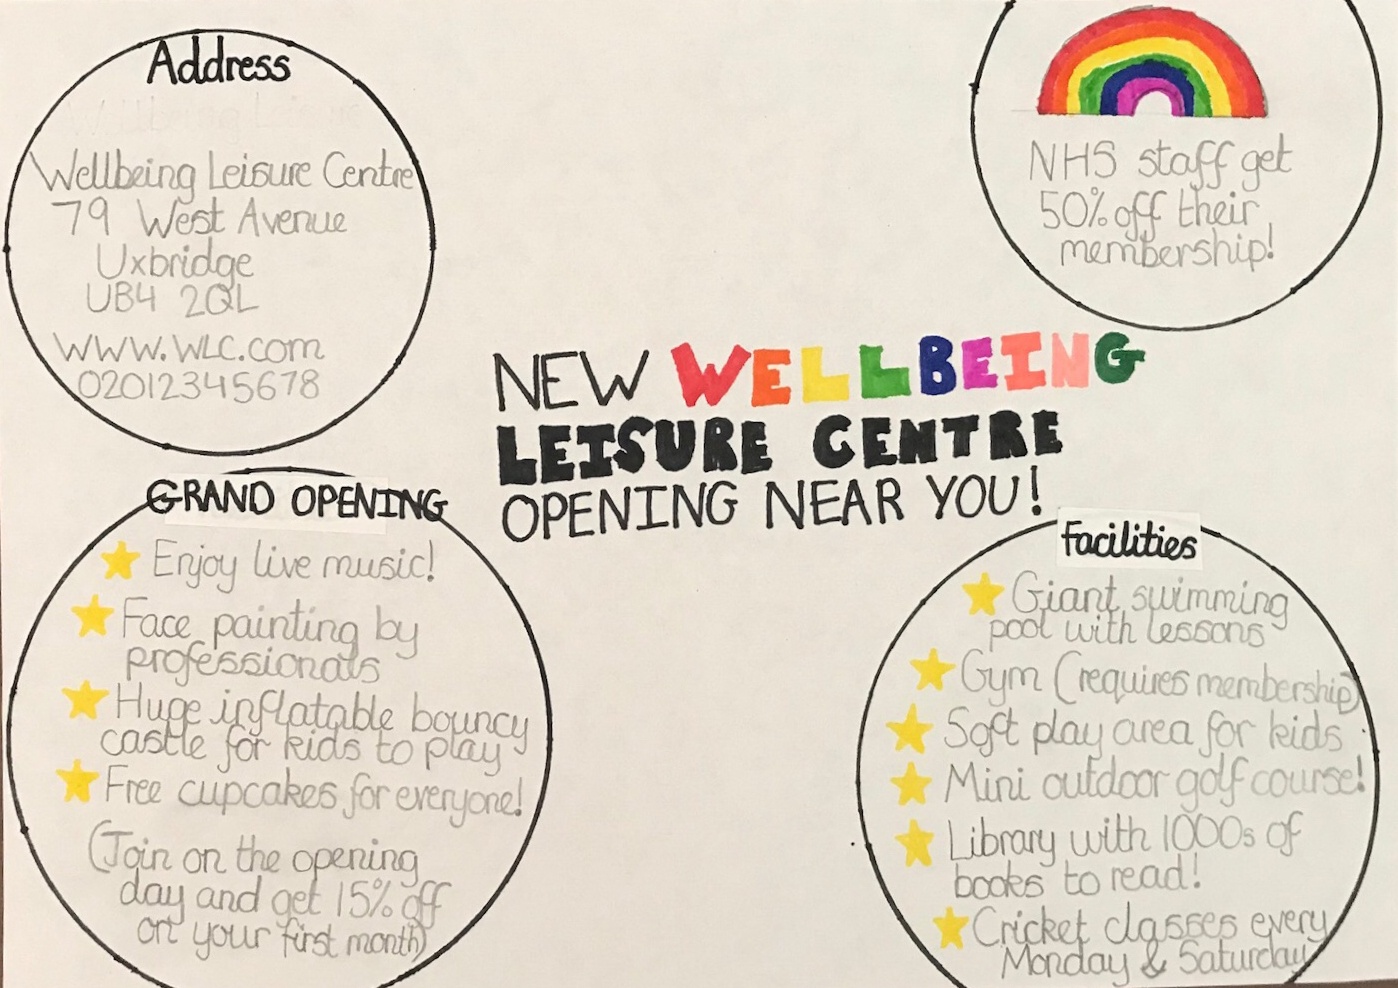 Address
Wellbeing Leisure Centre
79 West Avenue
Uxbridge
UB4 2QL
www.WLC.com
02012345678
NHS staff get
50% off their
membership!
NEW WELLBEING
LEISURE CENTRE
OPENING NEAR YOU!
GRAND OPENING
Enjoy live music!
Face painting by
professionals
Huge inflatable bouncy
castle for kids to play
Free cupcakes for everyone!
(Join on the opening
day and get 15% off
on your first month)
Facilities
Giant swimming
pool with lessons
Gym (requires membership)
Soft play area for kids
Mini outdoor golf course!
Library with 1000s of
books to read!
Cricket classes every
Monday & Saturday